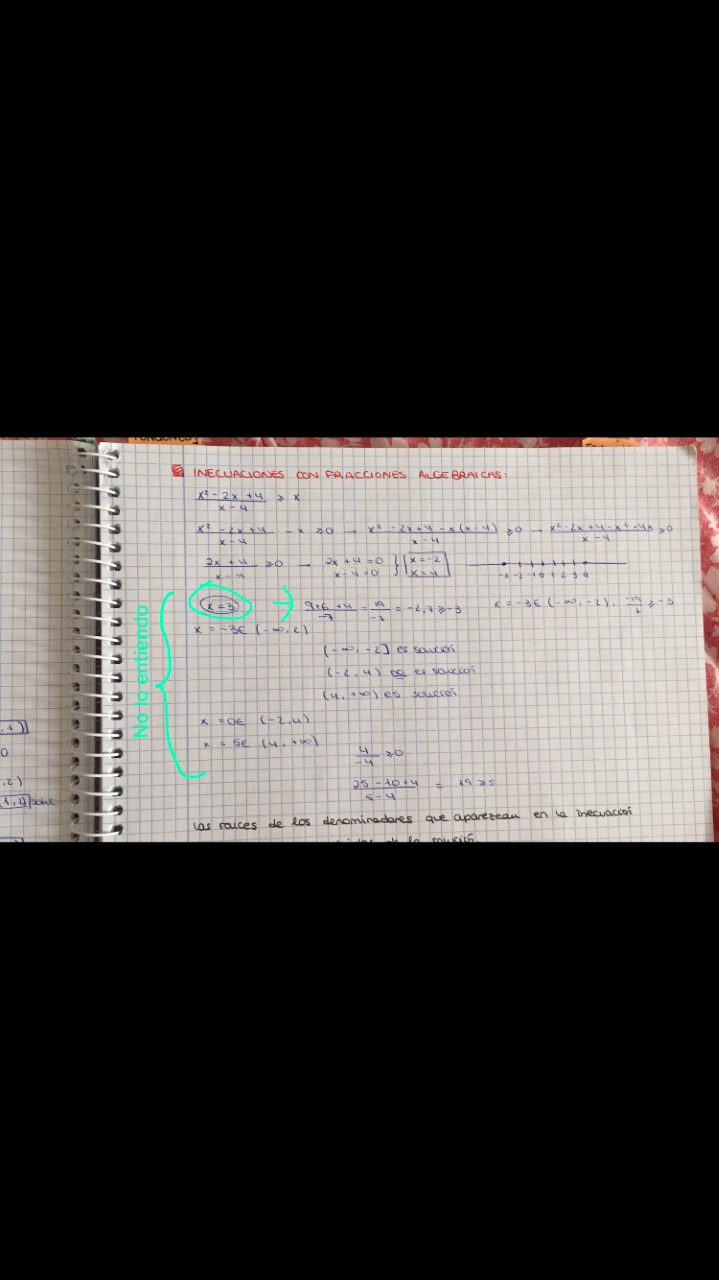 FUNCIONES
INECUACIONES CON FRACCIONES ALGEBRAICAS:
x² - 2x + 4 / x - 4 ≥ x
x² - 2x + 4 / x - 4 - x ≥ 0 → x² - 2x + 4 - x(x - 4) / x - 4 ≥ 0 → x² - 2x + 4 - x² + 4x / x - 4 ≥ 0
2x + 4 / x - 4 ≥ 0 → 2x + 4 = 0 x - 4 = 0 } x = -2 x = 4 -3 -2 -1 0 1 2 3 4
No lo entiendo
x = 3 → 9+6+4 / -7 = 19 / -7 = -2,7 ≥ -3 x = -3 ∈ (-∞, -2). -19 / 7 ≥ -3
x = -3 ∈ (-∞, 2)
(-∞, -2] es solución
(-2, 4) no es solución
(4, +∞) es solución
x = 0 ∈ (-2, 4)
x = 5 ∈ (4, +∞)
4 / -4 ≥ 0
25 - 10 + 4 / 5 - 4 = 19 ≥ 5
Las raíces de los denominadores que aparezcan en la inecuación
de la solución.